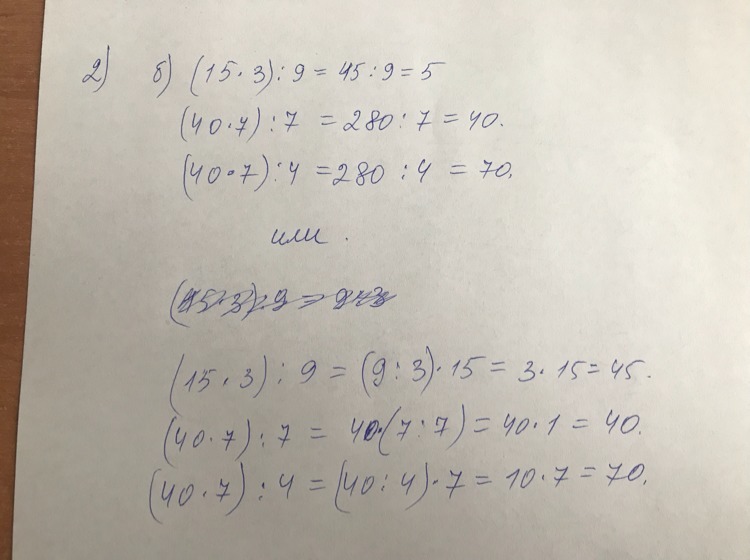 2) б) (15·3):9=45:9=5
(40·7):7 =280:7=40.
(40·7):4 =280:4 =70.
или.
(15·3):9 = (9:3)·15= 3·15=45.
(40·7):7 = 40·(7:7)=40·1=40.
(40·7):4=(40:4)·7=10·7=70.